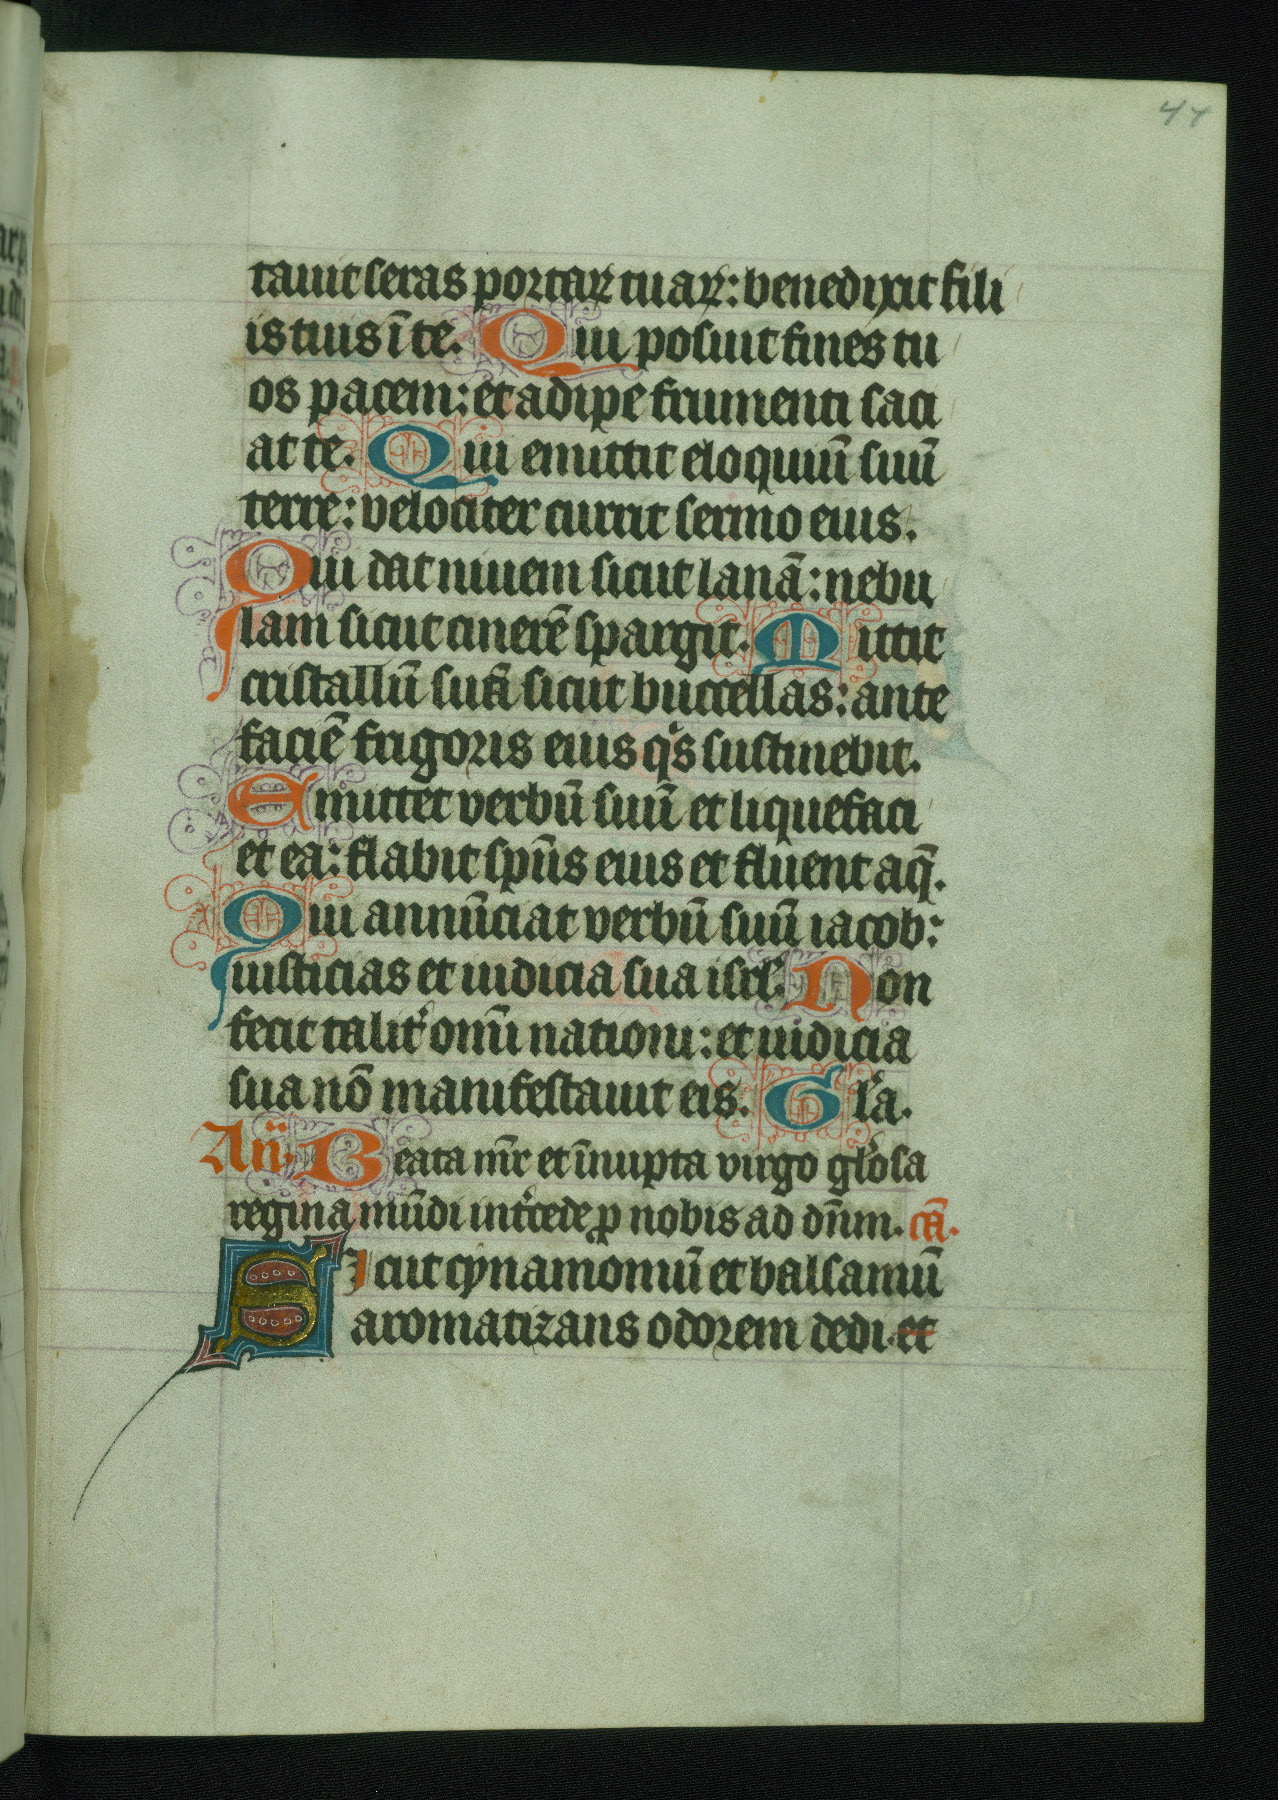 47
tauit seras portaꝝ tuaꝝ: benedixit fili
is tuis ī te. Qui posuit fines tu
os pacem: et adipe frumenti saci
at te. Qui emittit eloquiū suū
terre: velociter currit sermo eius.
Qui dat niuem sicut lanā: nebu
lam sicut cinerē spargit. Mittit
cristallū suū sicut buccellas: ante
faciē frigoris eius qˢ sustinebit.
Emittet verbū suū et liquefaci
et ea: flabit sp̄us eius et fluent aq̄.
Qui annūciat verbū suū iacob:
iusticias et iudicia sua isrl̄. Non
fecit talit᷑ omī nationi: et iudicia
sua nō manifestauit eis. Gl̄a.
Añ. Beata mr̄ et īnupta virgo gl̄osa
regina mūdi int᷑cede ꝓ nobis ad dn̄m. cā.
Sicut cynamomū et balsamū
aromatizans odorem dedi. et